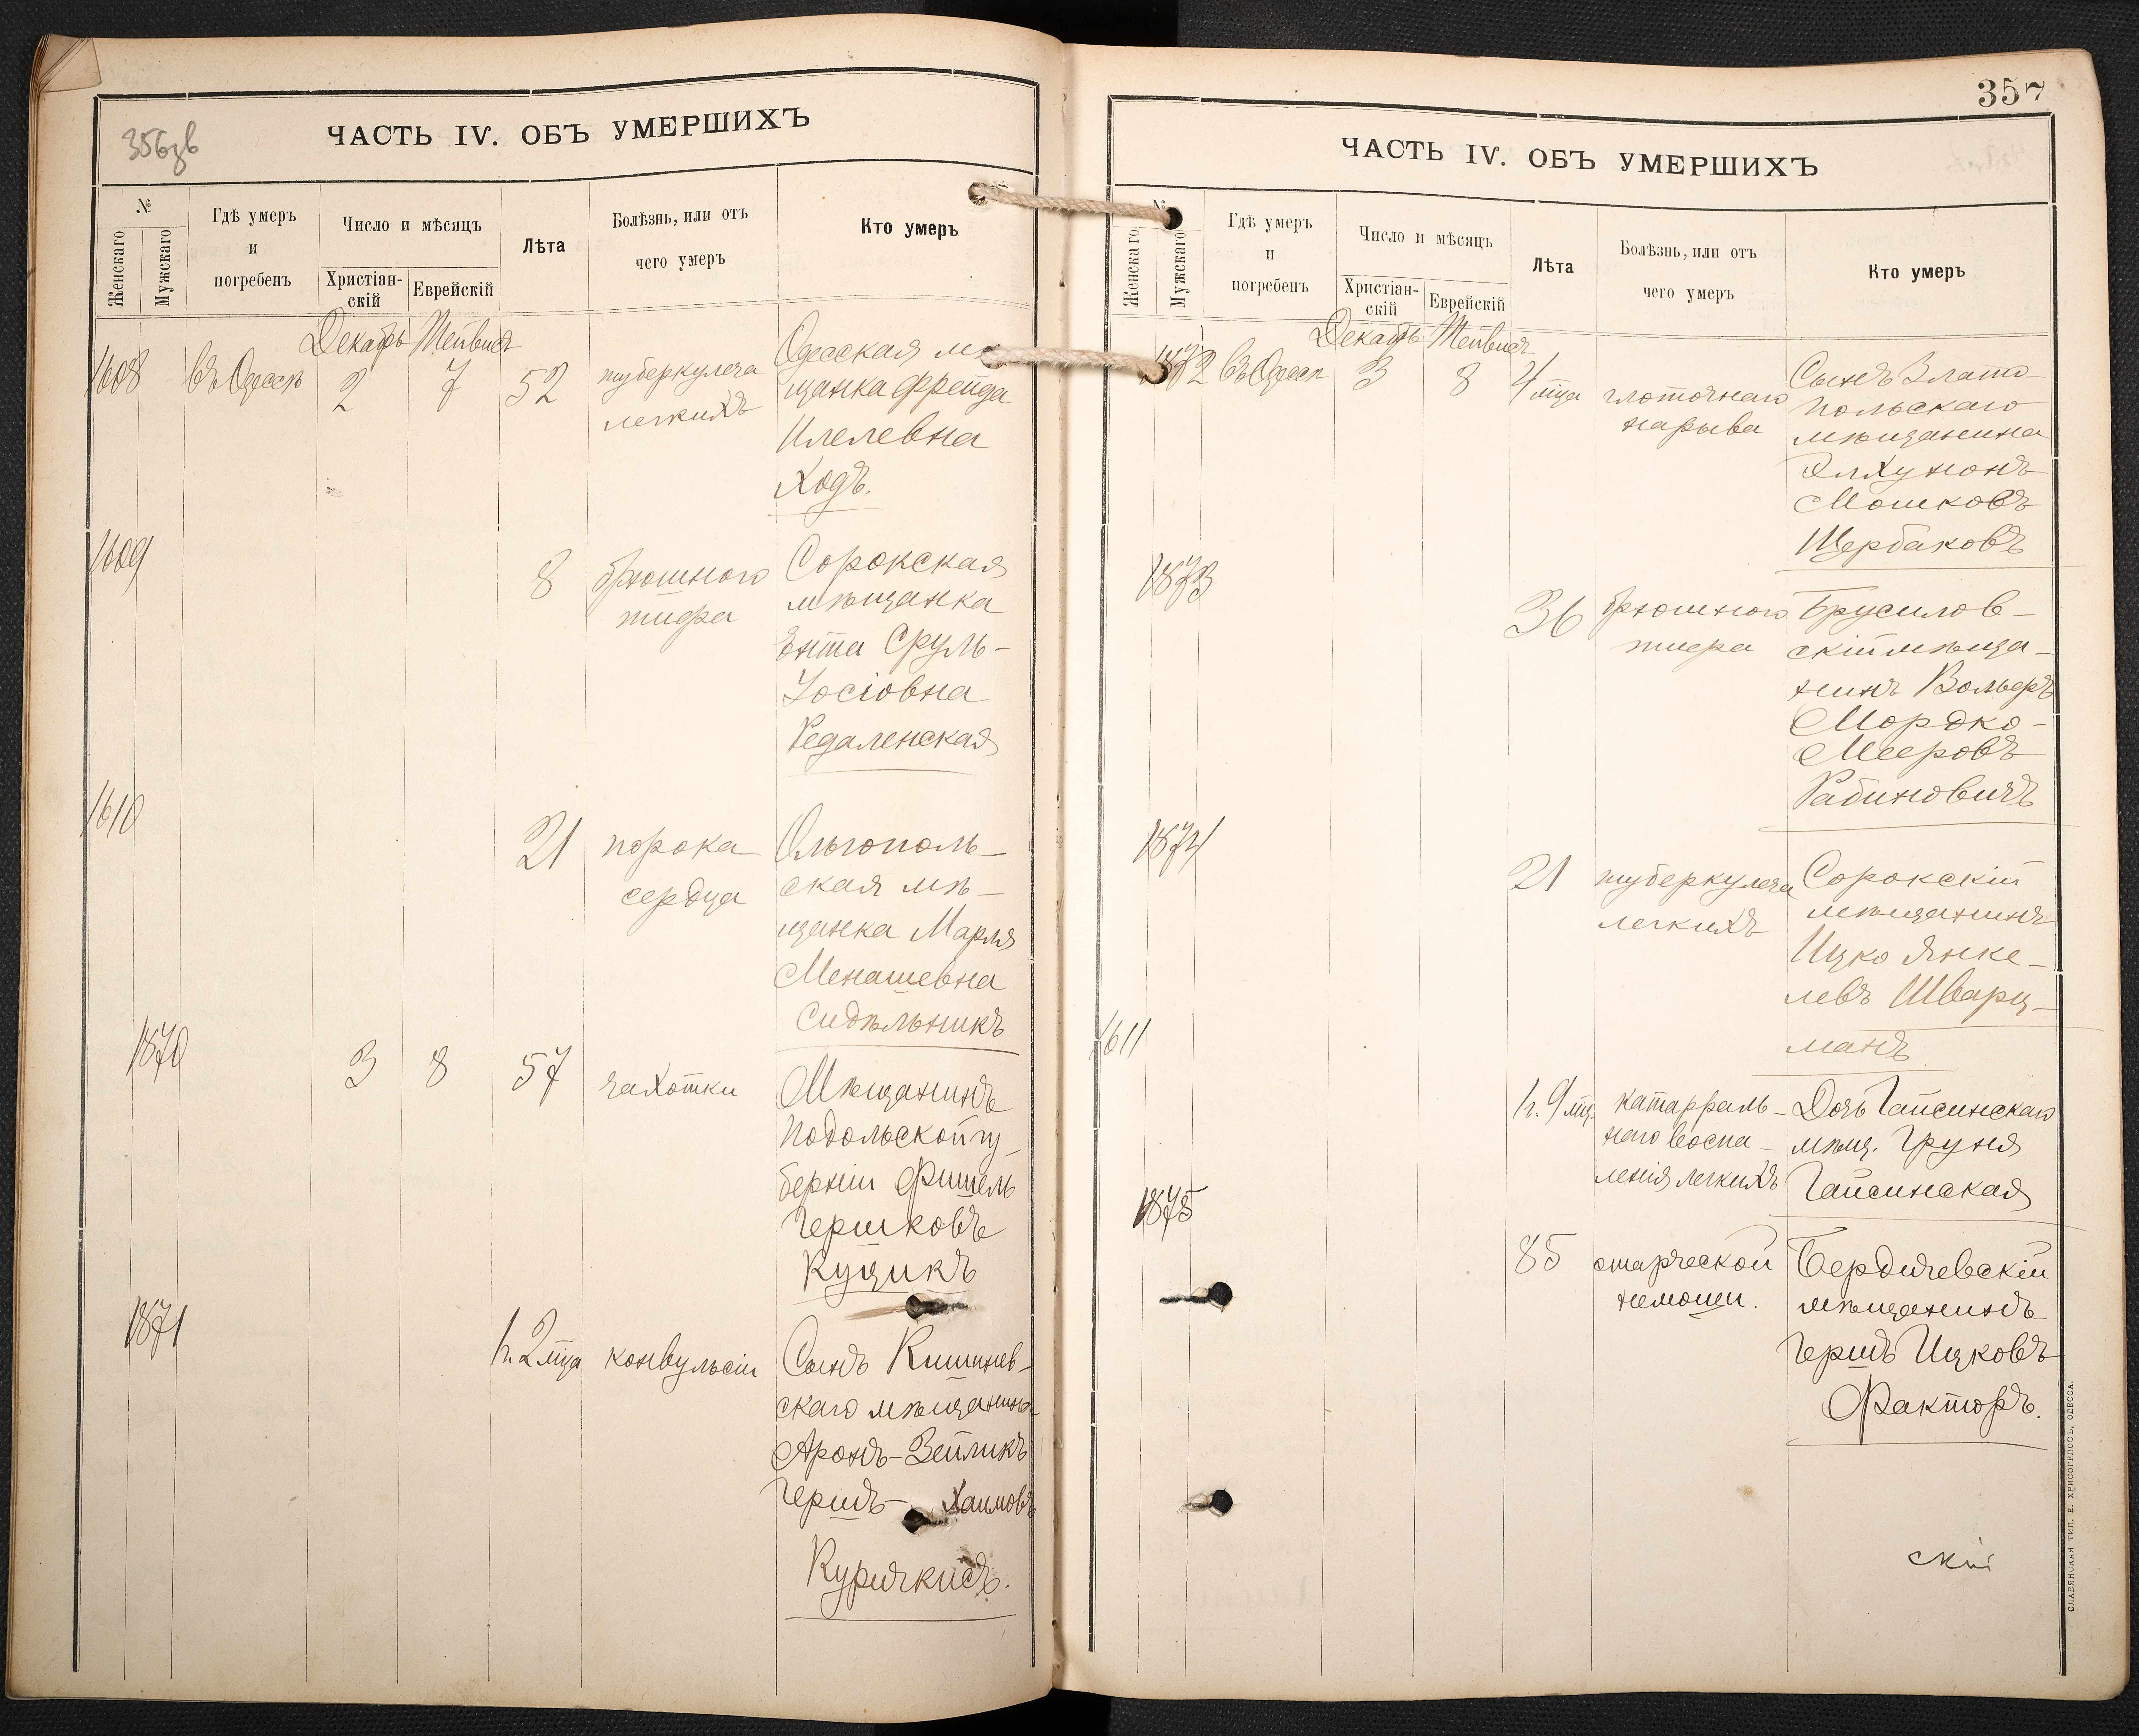 356зв
ЧАСТЬ IV. ОБЪ УМЕРШИХЪ
№
Женскаго
Мужскаго
Гдѣ умеръ
и
погребенъ
Число и мѣсяцъ
Христіан-
скій
Еврейскій
Лѣта
Болѣзнь, или отъ
чего умеръ
Кто умеръ
Декабрь Тейвисъ
1608 въ Одессѣ 2 7 52
туберкулеза
легкихъ
Одесская мѣ
щанка Фрейда
Илелевна
Ходъ.
1609
8
брюшного
тифа
Сорокская
мѣщанка
Ента Сруль-
Іосіовна
Редаленская
1610
21
порока
сердца
Ольгополь-
ская мѣ-
щанка Марля
Менашевна
Сидѣльникъ
1870 3 8 57
чахотки
Мѣщанинъ
Подольской гу-
берніи Фишель
Гершковъ
Куцикъ
1871
1 г. 2 мца конвульсіи
Сынъ Кишинев-
скаго мѣщанина
Аронъ-Зейликъ
Гершъ- Хаимовъ
Куричкисъ.
357
ЧАСТЬ IV. ОБЪ УМЕРШИХЪ
№
Женскаго
Мужскаго
Гдѣ умеръ
и
погребенъ
Число и мѣсяцъ
Христіан-
скій
Еврейскій
Лѣта
Болѣзнь, или отъ
чего умеръ
Кто умеръ
Декабрь Тейвисъ
1872 въ Одессѣ 3 8 4 мца
глоточнаго
нарыва
Сынъ Злато
польскаго
мѣщанина
Элхунонъ
Мошковъ
Щербаковъ
1873
36
брюшного
тифа
Брусилов-
скій мѣща-
нинъ Вольфъ
Мордко-
Мееровъ
Рабиновичъ
1874
21
туберкулеза
легкихъ
Сорокскій
мѣщанинъ
Ицко Янке-
левъ Шварц-
манъ
1611
1 г. 9 мц.
катарраль-
наго воспа-
ленія легкихъ
Дочь Гайсинскаго
мѣщ. Груня
Гайсинская
1875
85
старческой
немощи.
Бердичевскій
мѣщанинъ
Гершъ Ицковъ
Факторъ.
скій
СЛАВЯНСКАЯ ТИП. Е. ХРИСОГЕЛОСЪ, ОДЕССА.